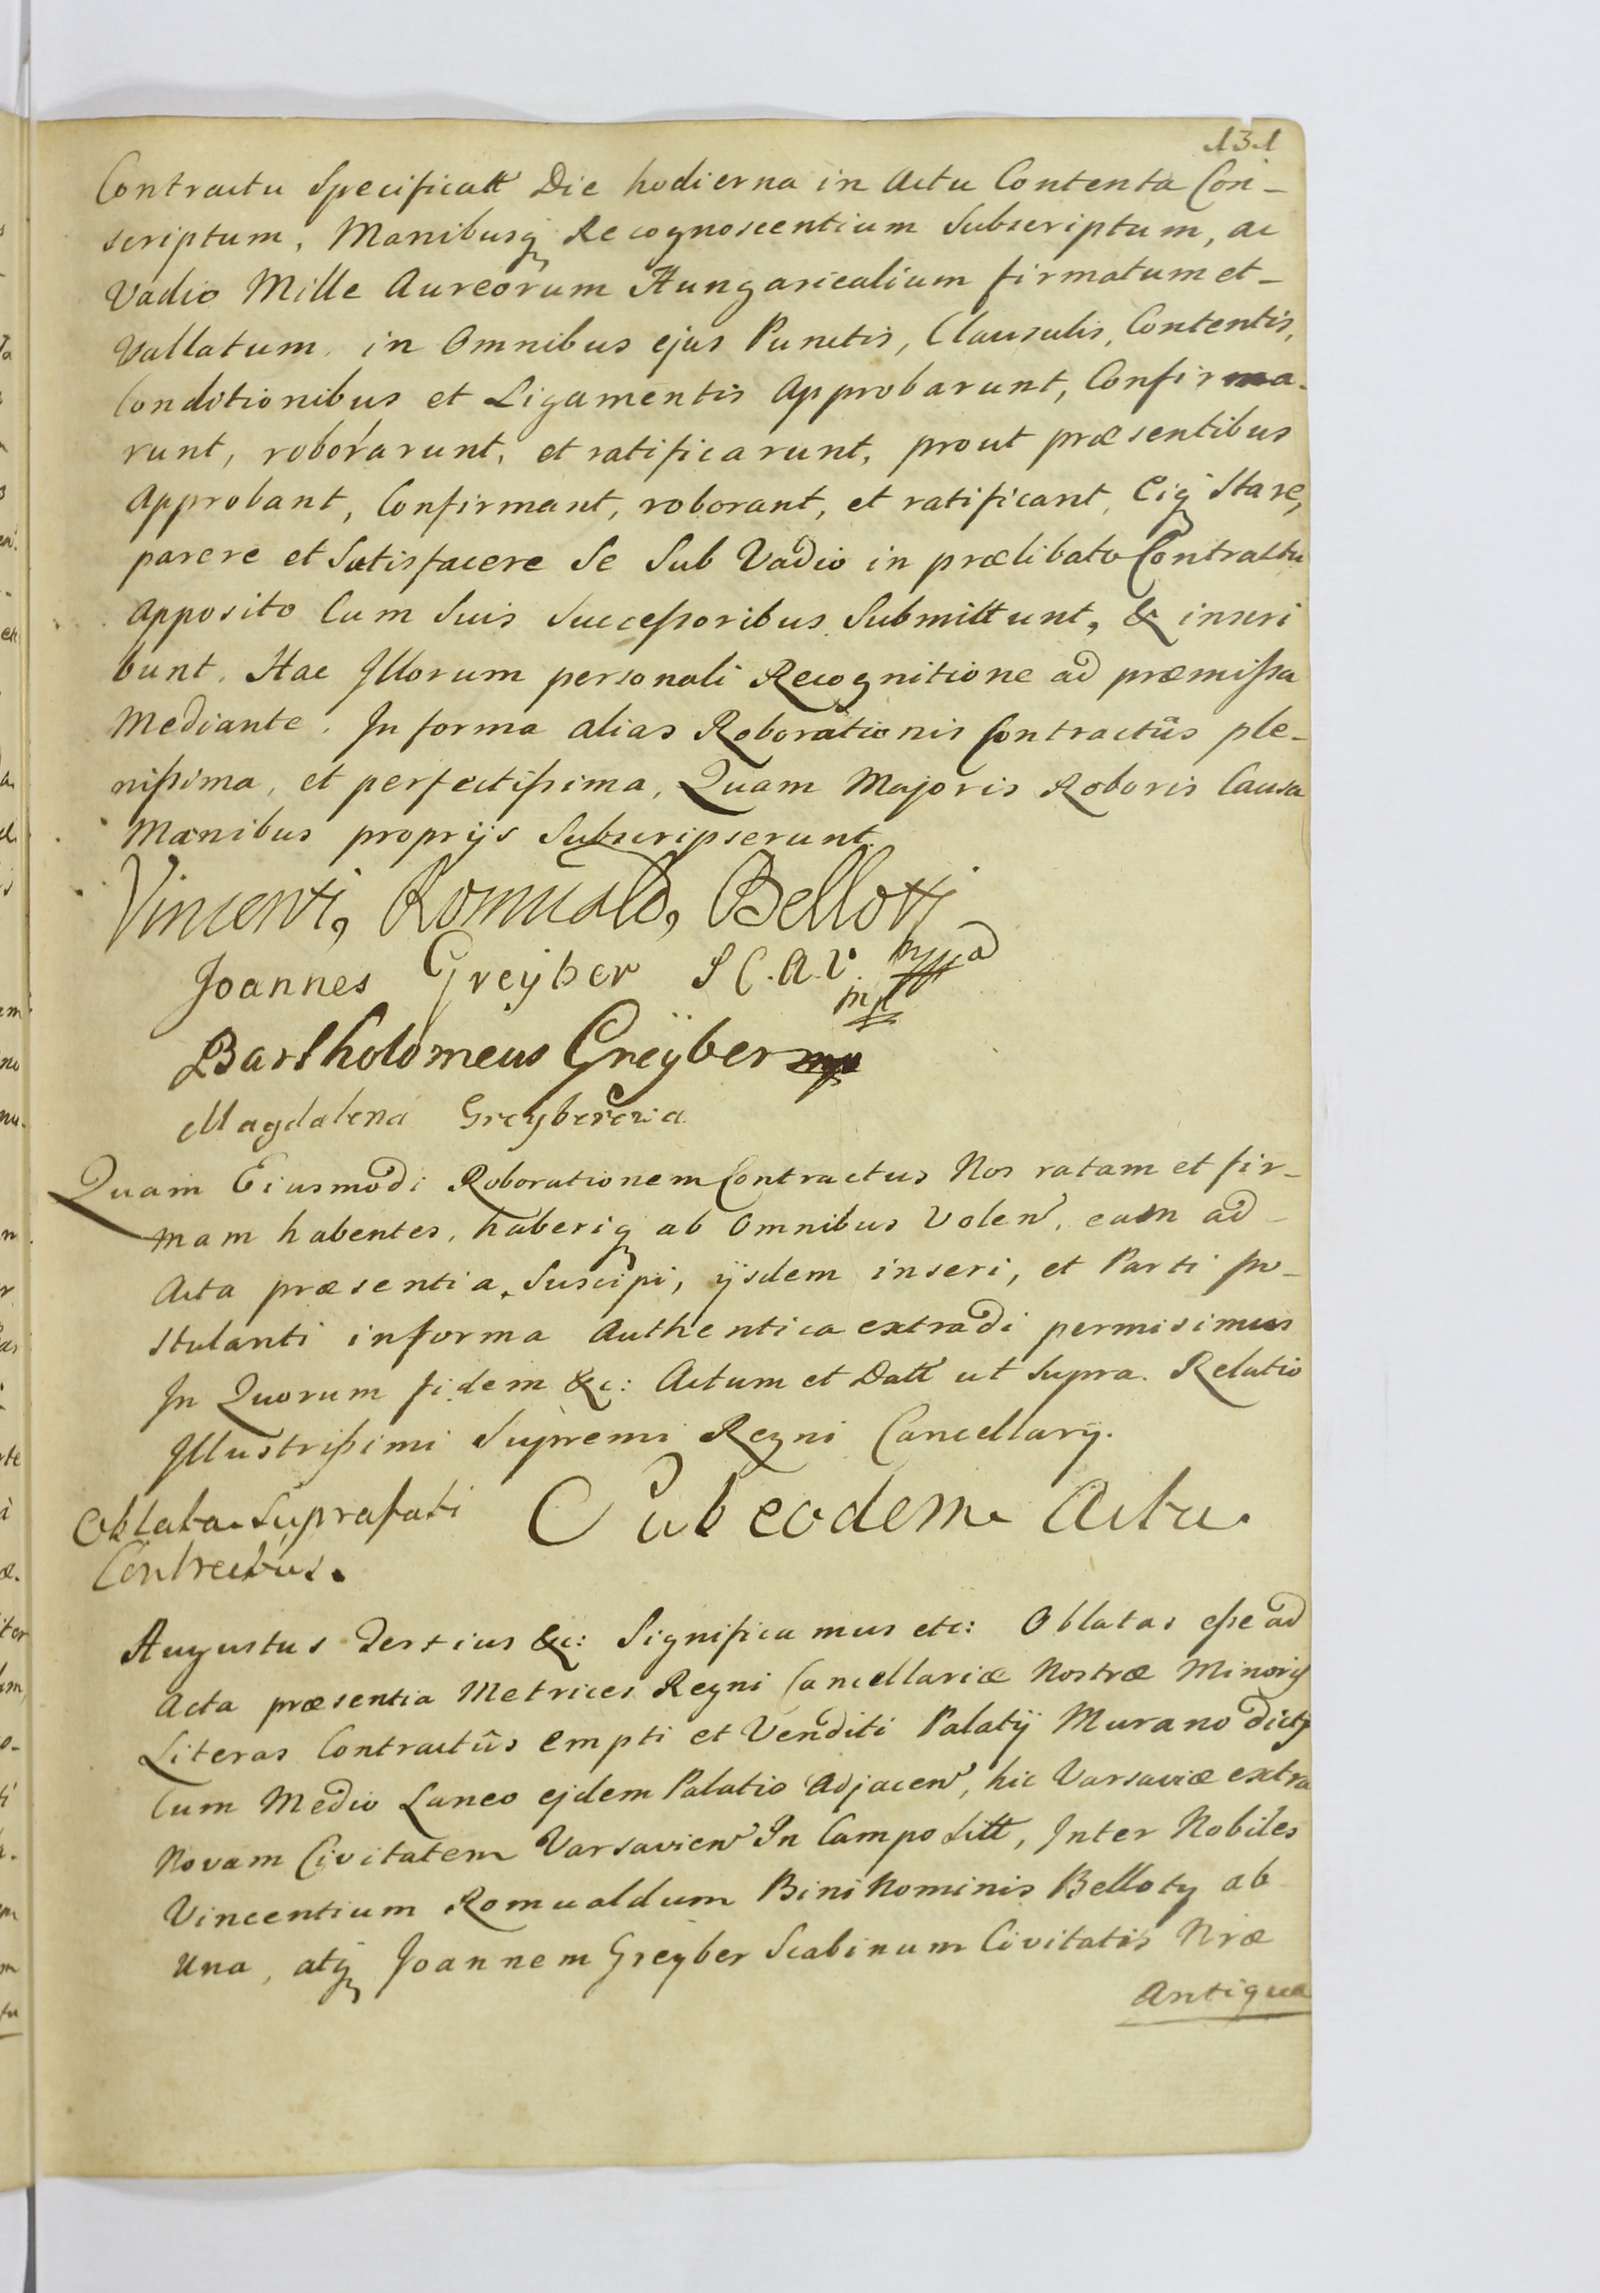 131
Contractu Specificatt Die hodierna in Actu Contenta Con-
scriptum, Manibusq Recognoscentium Subscriptum, ac
Vadio Mille Aureorum Hungaricalium firmatum et-
Vallatum. in Omnibus ejus Punctis, Clausulis, Contentis,
Conditionibus et Ligamentis Approbarunt, Confirma-
runt, roborarunt, et ratificarunt, prout præsentibus
Approbant, Confirmant, roborant, et ratificant, Eiq Stare,
parere et Satisfacere Se Sub Vadio in prælibato Contractu
Apposito Cum Suis Successoribus Submittunt, & inscri
bunt. Hac Illorum personali Recognitione ad præmissa
Mediante. In forma alias Roborationis Contractûs ple-
nissima, et perfectissima, Quam Majoris Roboris Causa
Manibus proprijs Subscripserunt.
Vincenti, Romuald, Bellotti
Joannes Greyber S C. A. V.
mp
Bartholomeus Greÿber mp
Magdalena Greyberowa
Quam Eiusmodi Roborationem Contractus Nos ratam et fir-
mam habentes, haberiq ab Omnibus Volen, eam ad
Acta præsentia Suscipi, ijsdem inseri, et Parti po-
stulanti informa Authentica extradi permisimus
In Quorum fidem &c: Actum et Datt ut Supra. Relatio
Illustrissimi Supremi Regni Cancellarij.
Oblata Suprafati
Contractus.
Sub eodem Actu.
Augustus Tertius &c: Significamus etc: Oblatas esse ad
Acta præsentia Metrices Regni Cancellariæ Nostræ Minoris
Literas Contractûs empti et Venditi Palatij Murano dicti
Cum Medio Laneo ejdem Palatio Adjacen, hic Varsaviæ extra
Novam Civitatem Varsavien In Campo Sitt, Inter Nobiles
Vincentium Romualdum Bini Nominis Belloty ab
Una, atq Joannem Greyber Scabinum Civitatis Nræ
Antiquæ